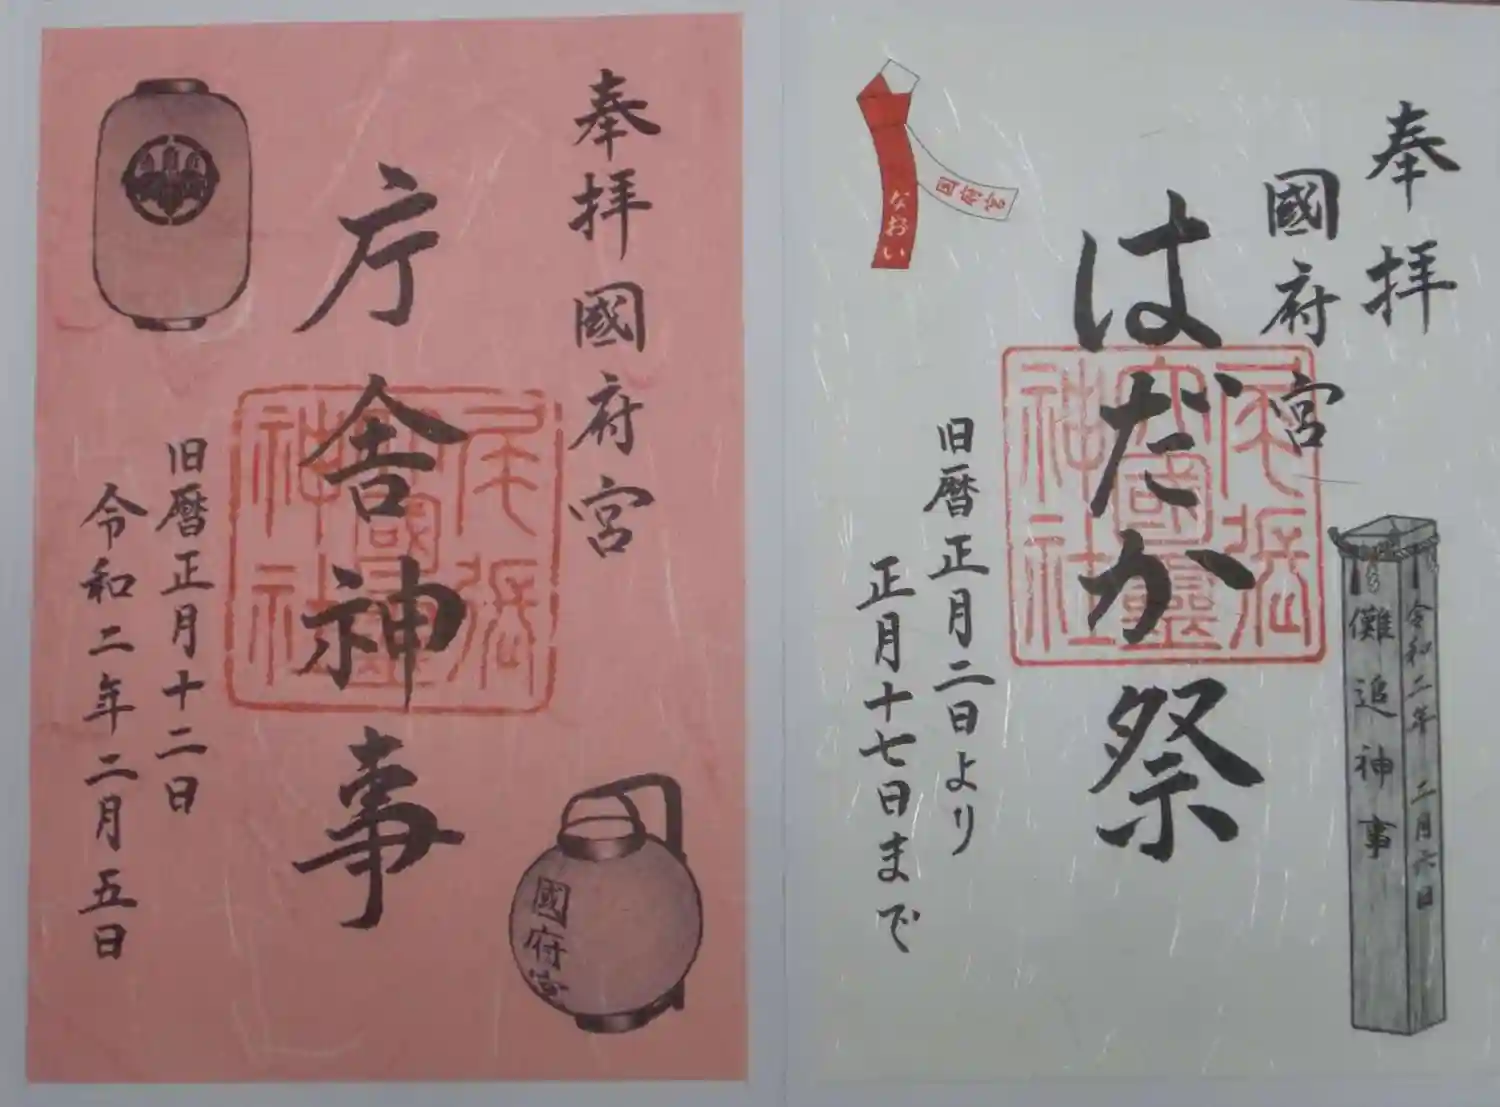 奉拝
國府宮
はだか祭
旧暦正月二日より
正月十七日まで
なおい
国府宮
尾張
大國靈
神社
儺追神事
令和二年 二月六日
奉拝國府宮
庁舎神事
旧暦正月十二日
令和二年二月五日
尾張
大國靈
神社
國府宮